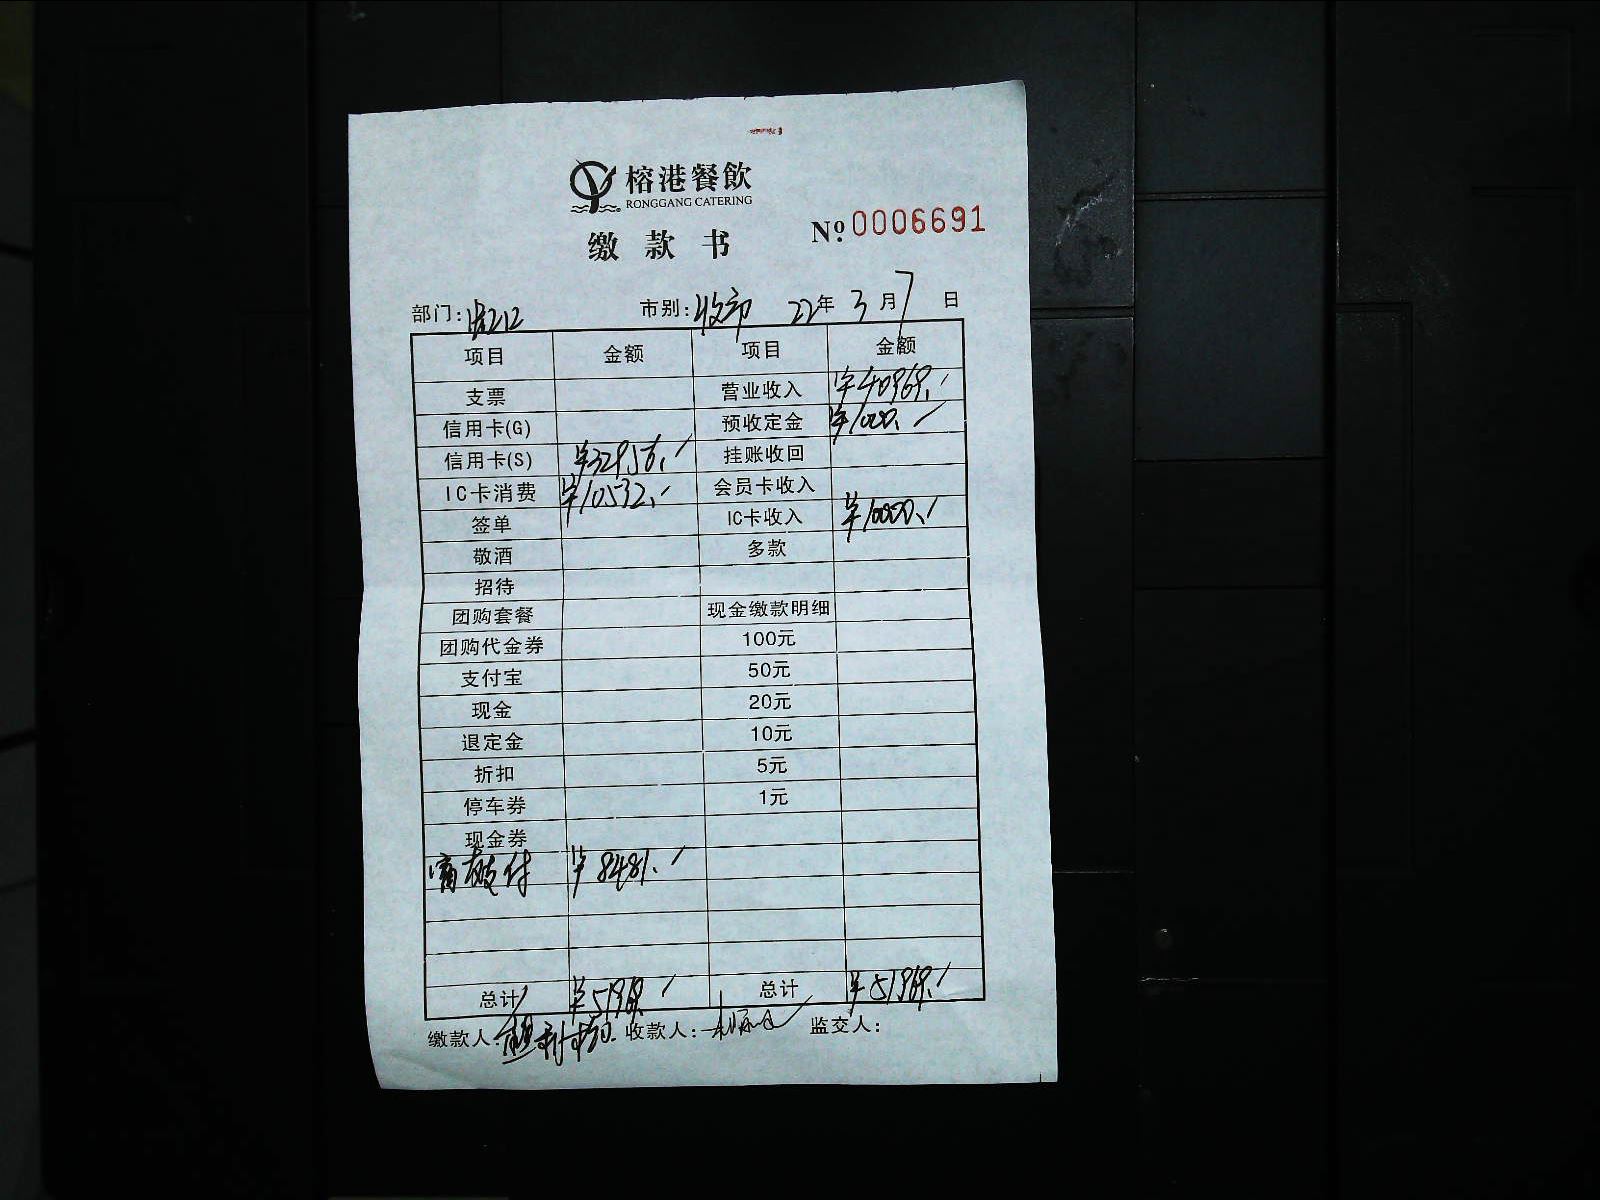 榕港餐飲
RONGGANG CATERING
缴款书
№:0006691
部门: 市别:收市 22年 3月7日
项目 金额 项目 金额
支票 营业收入 ¥40969.
信用卡(G) 预收定金 ¥1000.
信用卡(S) ¥32956. 挂账收回
IC卡消费 ¥10532. 会员卡收入
签单 IC卡收入 ¥10000.
敬酒 多款
招待
团购套餐 现金缴款明细
团购代金券 100元
支付宝 50元
现金 20元
退定金 10元
折扣 5元
停车券 1元
现金券
¥8481.
总计 ¥51969. 总计 ¥51969.
缴款人: 收款人: 监交人: